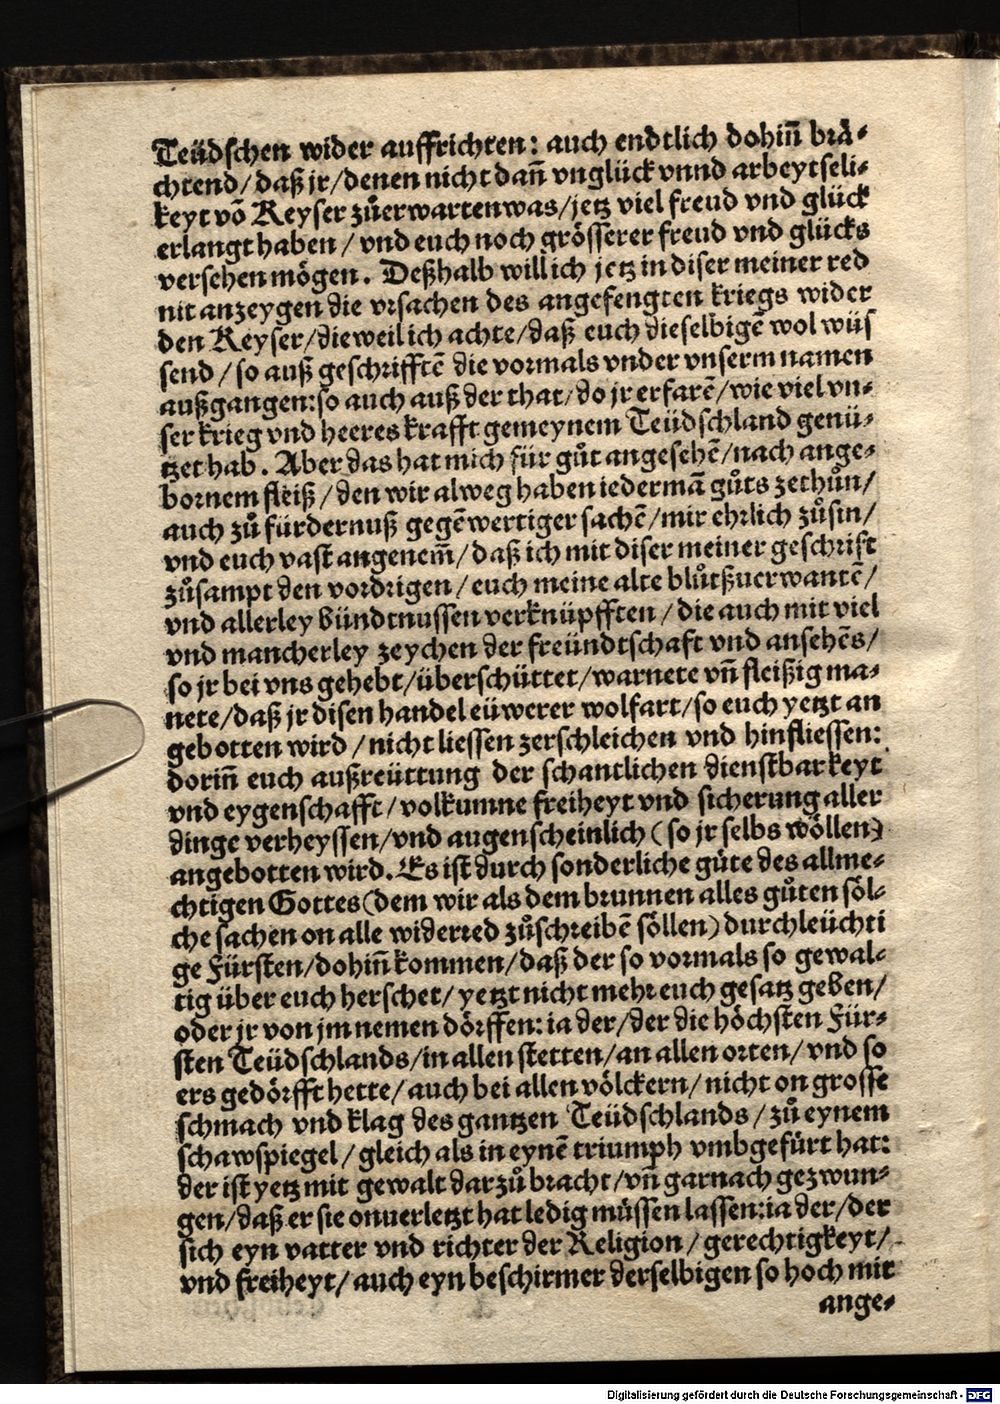 Teüdschen wider auffrichten: auch endtlich dohiñ brå⸗
chtend/daß jr/denen nicht dañ vnglück vnnd arbeytseli⸗
keyt võ Keyser zůerwarten was/jetz viel freud vnd glück
erlangt haben/vnd euch noch grösserer freud vnd glücks
versehen mögen. Deßhalb will ich jetz in diser meiner red
nit anzeygen die vrsachen des angefengten kriegs wider
den Keyser/dieweil ich achte/daß euch dieselbigẽ wol wüs
send/so auß geschrifftẽ die vormals vnder vnserm namen
außgangen:so auch auß der that/do jr erfarẽ/wie viel vn⸗
ser krieg vnd heeres krafft gemeynem Teüdschland genü⸗
tzet hab. Aber das hat mich für gůt angesehẽ/nach ange⸗
bornem fleiß/den wir alweg haben iedermã gůts zethůn/
auch zů fürdernuß gegẽwertiger sachẽ/mir ehrlich zůsin/
vnd euch vast angenem̃/daß ich mit diser meiner geschrift
zůsampt den vordrigen/euch meine alte blůtßuerwantẽ/
vnd allerley bündtnussen verknüpfften/die auch mit viel
vnd mancherley zeychen der freündtschaft vnd ansehẽs/
so jr bei vns gehebt/überschüttet/warnete vñ fleißig ma⸗
nete/daß jr disen handel eüwerer wolfart/so euch yetzt an
gebotten wird/nicht liessen zerschleichen vnd hinfliessen:
doriñ euch außreüttung der schantlichen dienstbarkeyt
vnd eygenschafft/volkumne freiheyt vnd sicherung aller
dinge verheyssen/vnd augenscheinlich (so jr selbs wöllen)
angebotten wird. Es ist durch sonderliche gůte des allme⸗
chtigen Gottes(dem wir als dem brunnen alles gůten söl⸗
che sachen on alle widerred zůschreibẽ söllen)durchleüchti
ge Fürsten/dohiñ kommen/daß der so vormals so gewal⸗
tig über euch herschet/yetzt nicht mehr euch gesatz geben/
oder jr von jm nemen dörffen:ia der/der die höchsten Für⸗
sten Teüdschlands/in allen stetten/an allen orten/vnd so
ers gedörfft hette/auch bei allen völckern/nicht on grosse
schmach vnd klag des gantzen Teüdschlands/zů eynem
schawspiegel/gleich als in eynẽ triumph vmbgefürt hat:
der ist yetz mit gewalt darzů bracht/vñ garnach gezwun⸗
gen/daß er sie onuerletzt hat ledig müssen lassen:ia der/der
sich eyn vatter vnd richter der Religion/gerechtigkeyt/
vnd freiheyt/auch eyn beschirmer derselbigen so hoch mit
ange⸗
Digitalisierung gefördert durch die Deutsche Forschungsgemeinschaft - DFG